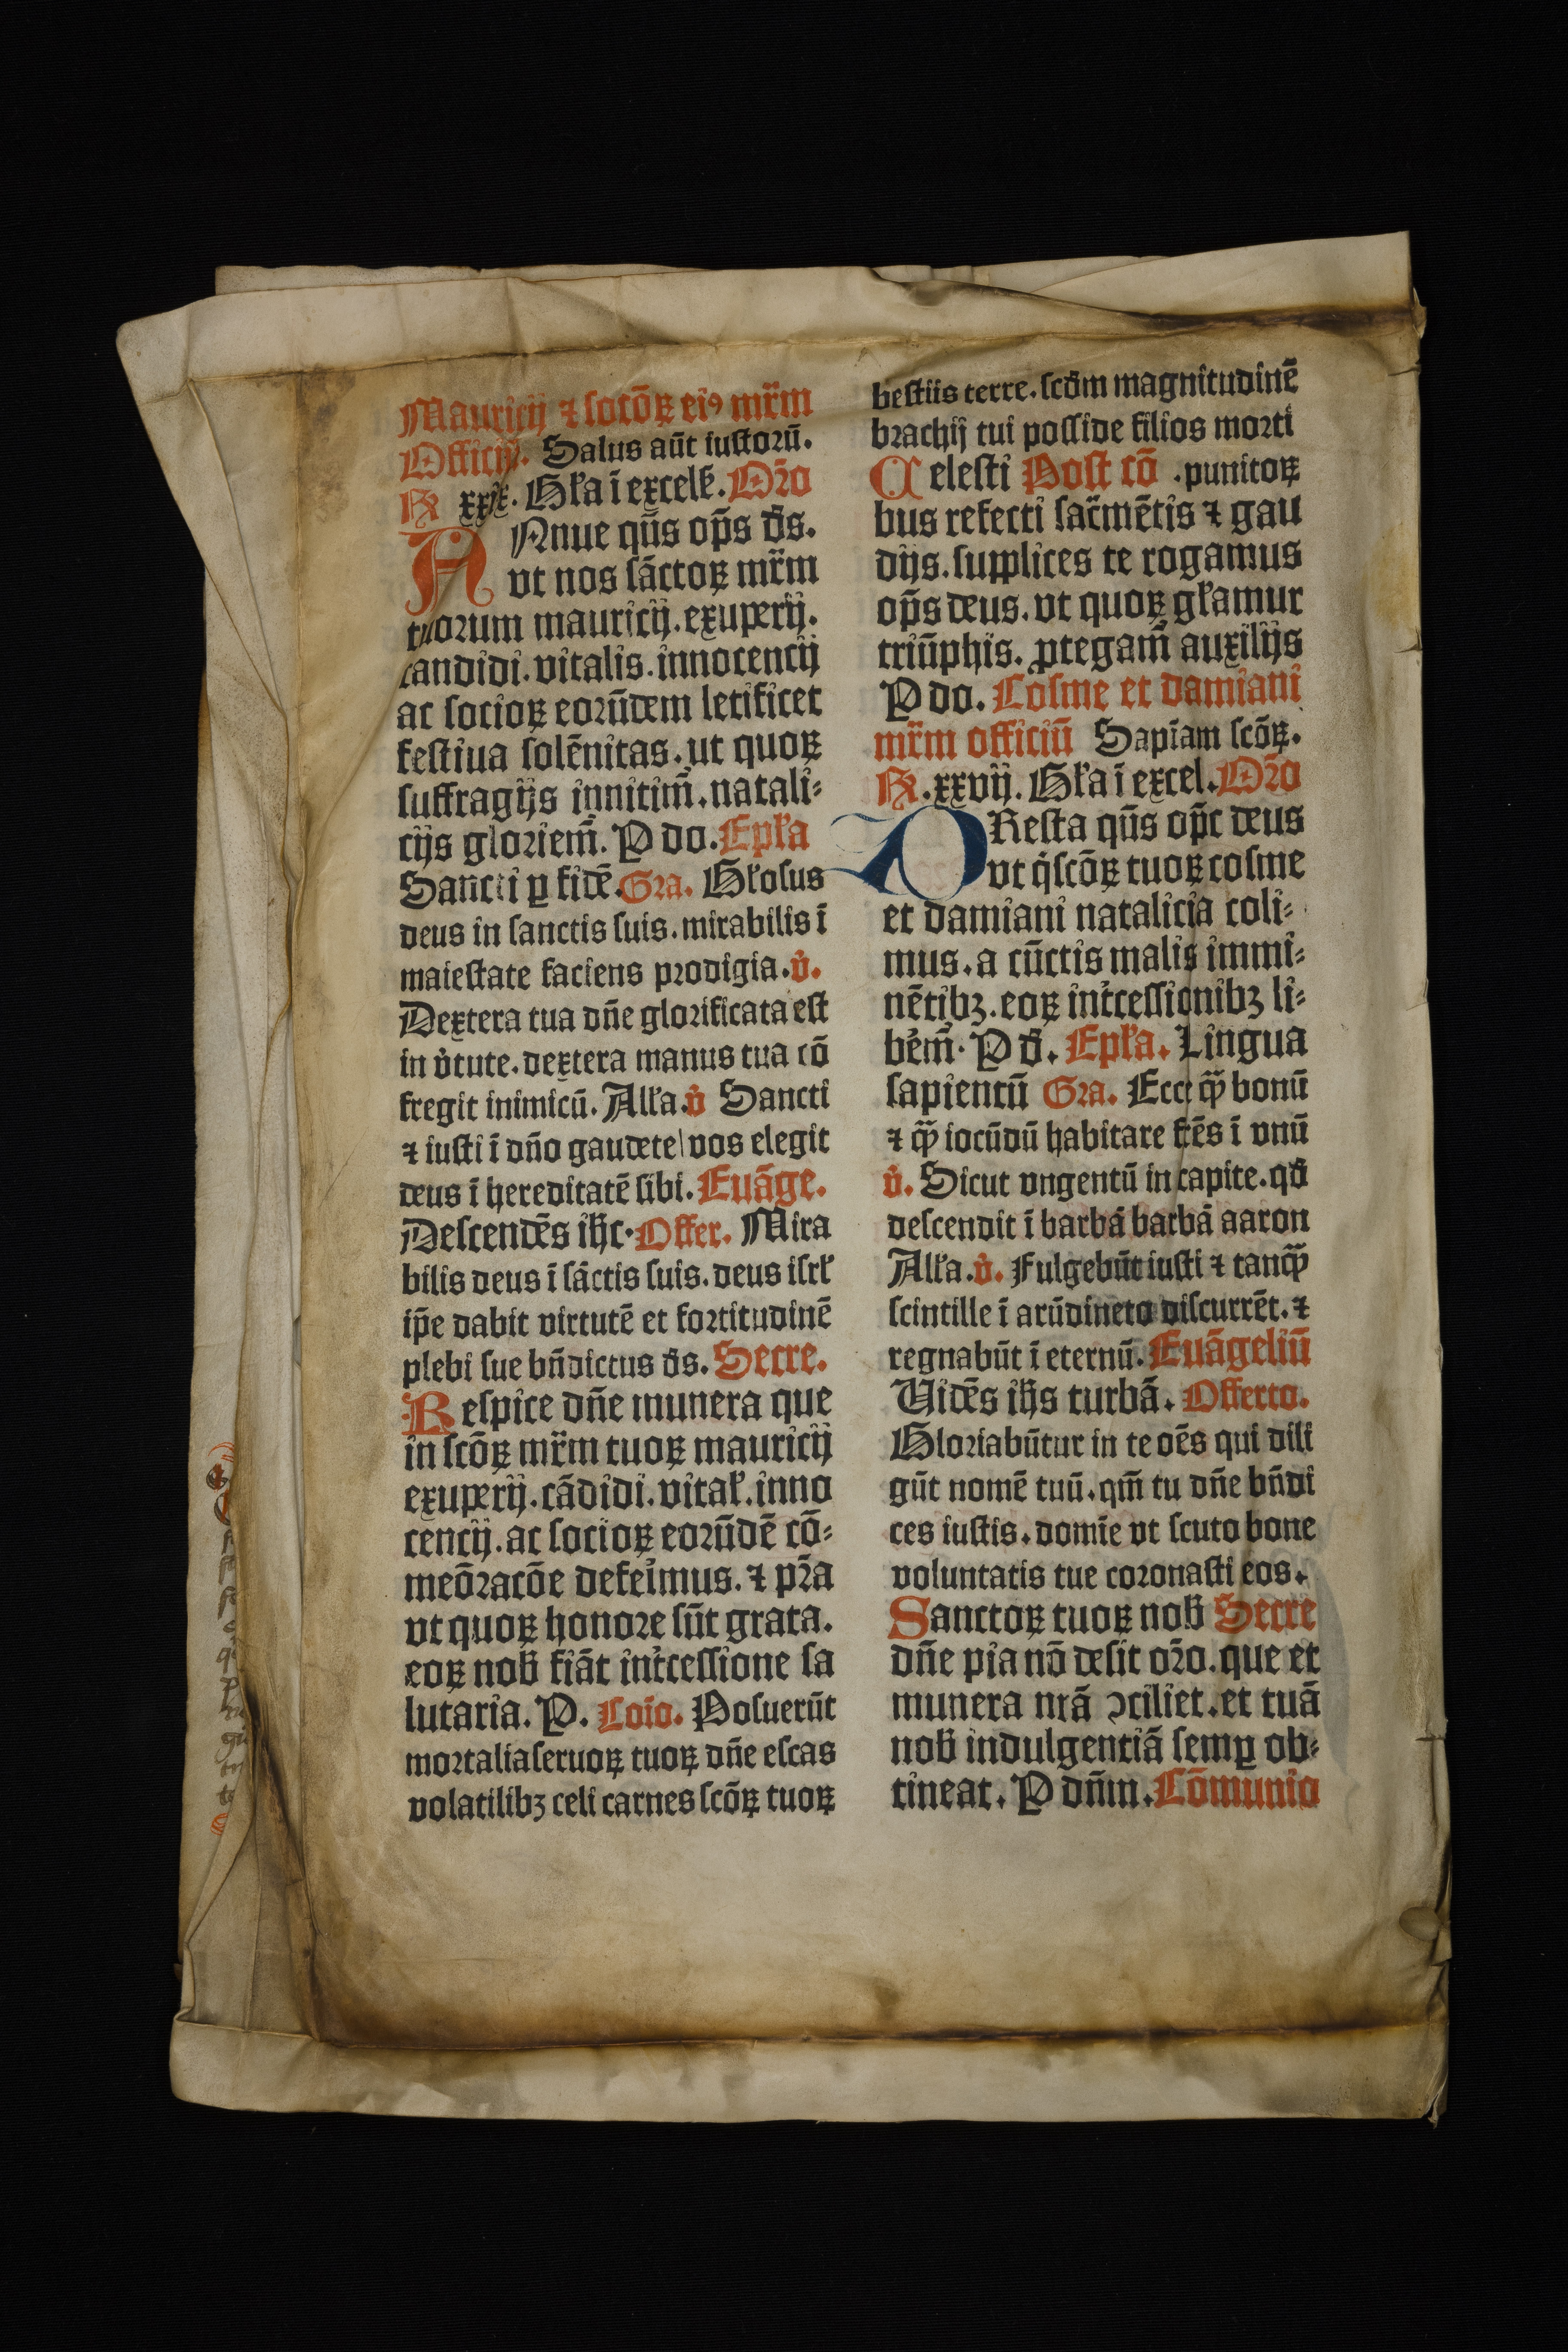 Mauricij ⁊ socōꝝ eiꝰ mr̄m
Officiū. Salus aūt iustorū.
R xxix. Gl'a ī excels'. Or̄o
ANnue qūs op̄s ds̄.
vt nos sāctoꝝ mr̄m
tuorum mauricij. exuperij.
candidi. vitalis. innocencij
ac socioꝝ eorūdem letificet
festiua solēnitas. ut quoꝝ
suffragijs innitim̄. natali-
cijs gloriem̄. P do. Epl'a
Sancti ꝑ fidē. Gra. Gl'osus
deus in sanctis suis. mirabilis ī
maiestate faciens prodigia. v̓.
Dextera tua dn̄e glorificata est
in v̓tute. dextera manus tua cō
fregit inimicū. All'a. v̓ Sancti
⁊ iusti ī dn̄o gaudete vos elegit
deus ī hereditatē sibi. Euāge.
Descendēs ih̄c. Offer. Mira
bilis deus ī sāctis suis. deus isrl'
ip̄e dabit virtutē et fortitudinē
plebi sue bn̄dictus ds̄. Secre.
Respice dn̄e munera que
in scōꝝ mr̄m tuoꝝ mauricij
exuperij. cādidi. vital'. inno
cencij. ac socioꝝ eorūdē cō-
meōracōe defeimus. ⁊ pr̄a
vt quoꝝ honore sūt grata.
eoꝝ nob̄ fiāt int̓cessione sa
lutaria. P. Coīo. Posuerūt
mortalia seruoꝝ tuoꝝ dn̄e escas
volatilibꝫ celi carnes scōꝝ tuoꝝ
bestiis terre. scd̄m magnitudinē
brachij tui posside filios morti
Celesti Post cō .punitoꝝ
bus refecti sac̄mētis ⁊ gau
dijs. supplices te rogamus
op̄s deus. vt quoꝝ gl'amur
triūphis. ꝓtegam̄ auxilijs
P do. Cosme et damiani
mr̄m officiū Sapīam scōꝝ.
R. xxvij. Gl'a ī excel. Or̄o
PResta qūs op̄c deus
vt q̓ scōꝝ tuoꝝ cosme
et damiani natalicia coli-
mus. a cūctis malis immi-
nētibꝫ. eoꝝ int̓cessionibꝫ li-
bem̄. P d̄. Epl'a. Lingua
sapientū Gra. Ecce qͣ̄ bonū
⁊ qͣ̄ iocūdū habitare frēs ī vnū
v̓. Sicut vngentū in capite. qd̄
descendit ī barbā barbā aaron
All'a. v̓. Fulgebūt iusti ⁊ tanqͣ̄
scintille ī arūdineto discurrēt. ⁊
regnabūt ī eternū. Euāgeliū
Uidēs ih̄s turbā. Offerto.
Gloriabūtur in te oēs qui dili
gūt nomē tuū. qm̄ tu dn̄e bn̄di
ces iustis. domīe vt scuto bone
voluntatis tue coronasti eos.
Sanctoꝝ tuoꝝ nob̄ Secre
dn̄e pia nō desit or̄o. que et
munera nr̄ā ꝯciliet. et tuā
nob̄ indulgentiā semꝑ ob-
tineat. P dn̄m. Cōmunio